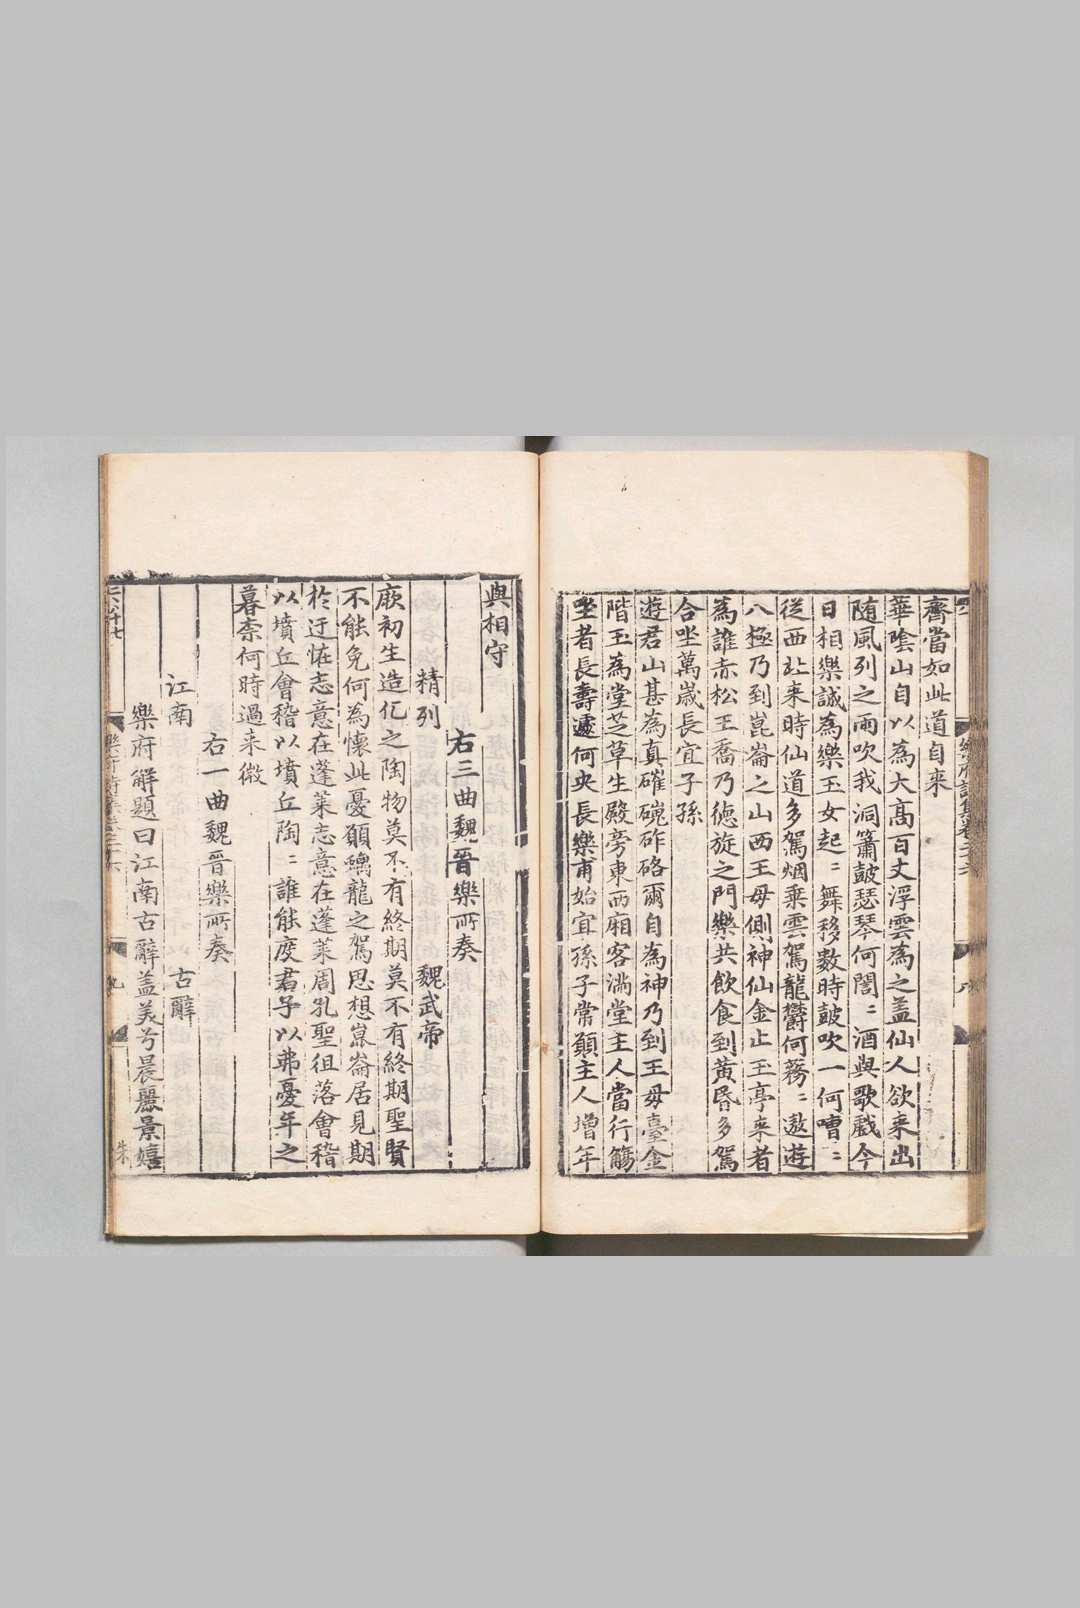 齊當如此道自来
華隂山自以為大髙百丈浮雲為之盖仙人欲来出
随風列之雨吹我洞簫鼓瑟琴何誾〻酒與歌戲今
日相樂誠為樂玉女起〻舞移數時鼓吹一何嘈〻
從西北来時仙道多駕烟乗雲駕龍欝何蓩〻遨遊
八極乃到崑崙之山西王母側神仙金止玉亭来者
為誰赤松王喬乃徳旋之門樂共飲食到黄昏多駕
合坐萬歳長宜子孫
遊君山甚為真磪𥗬砟硌爾自為神乃到王母臺金
階玉為堂芝草生殿旁東西廂客滿堂主人當行觴
坐者長壽遽何央長樂甫始宜孫子常願主人增年
與相守
右三曲魏晉樂所奏
精列 魏武帝
厥初生造化之陶物莫不有終期莫不有終期聖賢
不能免何為懷此憂願螭龍之駕思想崑崙居見期
於迂恠志意在蓬萊志意在蓬萊周孔聖徂落會稽
以墳丘會稽以墳丘陶〻誰能度君子以弗憂年之
暮柰何時過来微
右一曲魏晉樂所奏
江南 古辭
樂府解題曰江南古辭盖美芳晨麗景嬉
朱
九